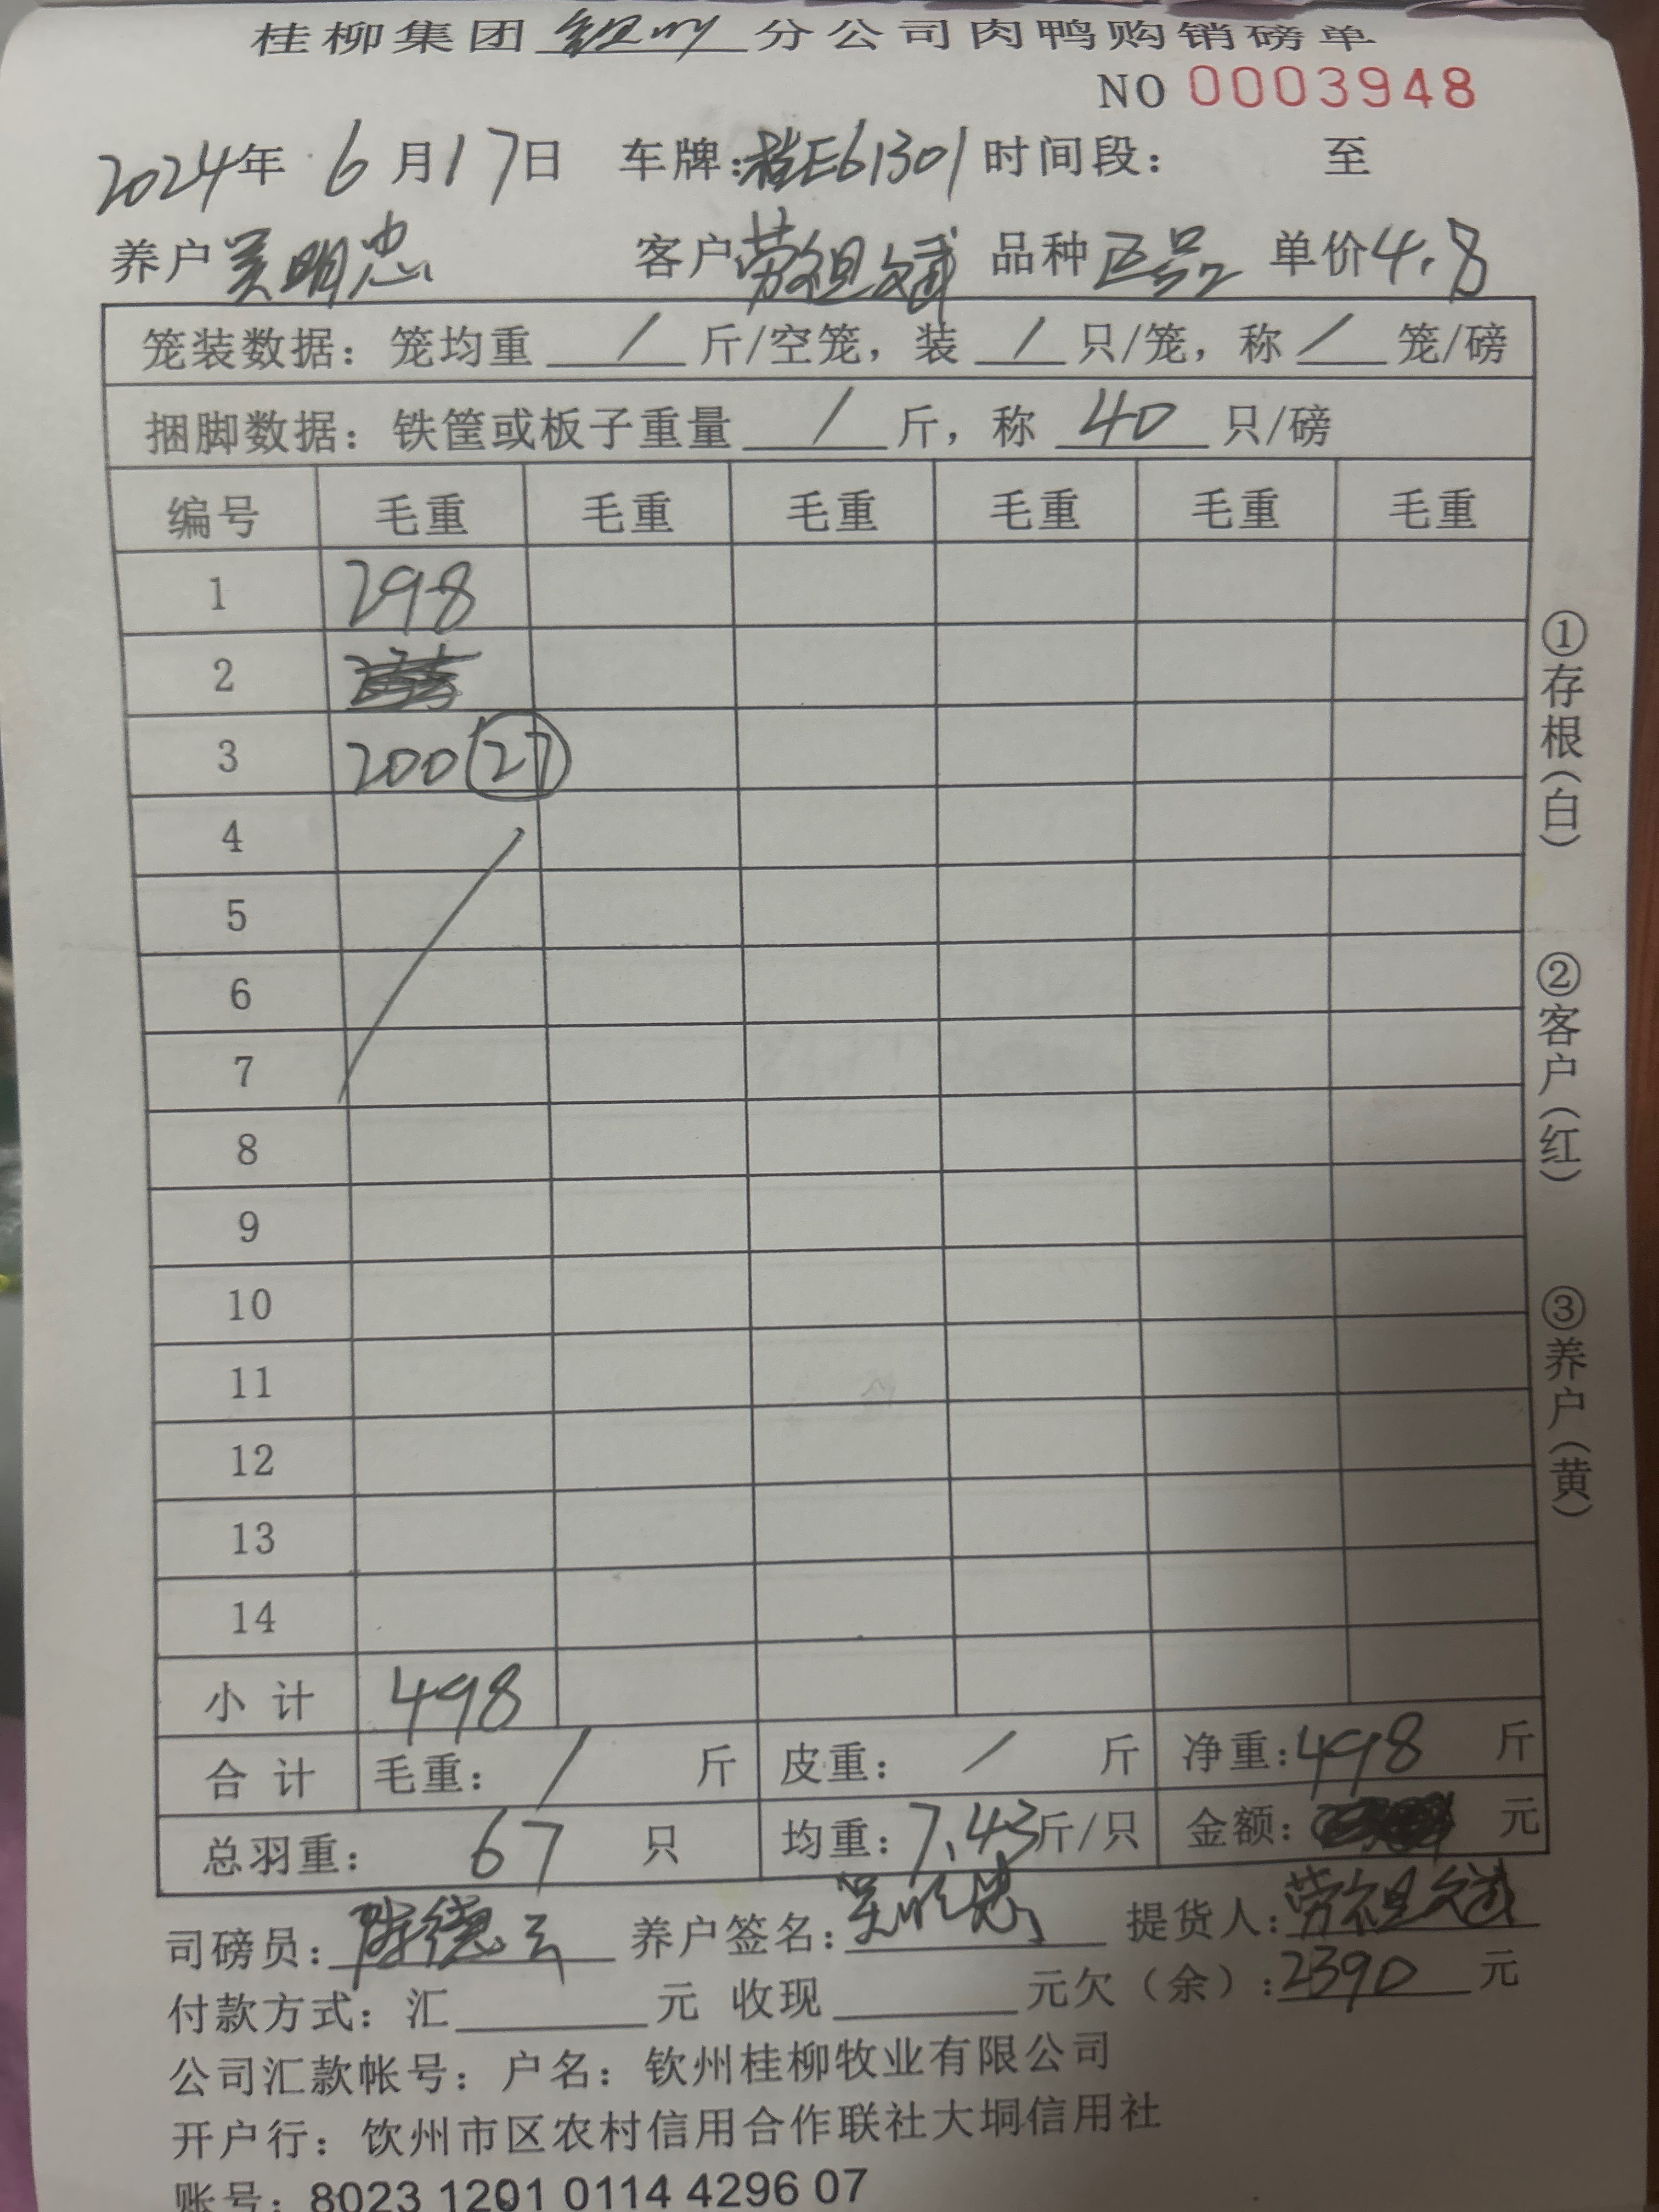 桂柳集团 钦州 分公司肉鸭购销磅单
NO 0003948
2024年 6月17日 车牌:桂E61301 时间段: 至
养户 吴明忠 客户 劳祖斌 品种 正品 单价4.8
笼装数据: 笼均重 / 斤/空笼, 装 / 只/笼, 称 / 笼/磅
捆脚数据: 铁筐或板子重量 / 斤, 称 40 只/磅
编号 毛重 毛重 毛重 毛重 毛重 毛重
1 298
2
3 200 27
4
5
6
7
8
9
10
11
12
13
14
小计 498
合计 毛重: / 斤 皮重: / 斤 净重:498 斤
总羽重: 67 只 均重:7.43斤/只 金额: 元
司磅员: 养户签名:吴明忠 提货人:劳祖斌
付款方式: 汇 元 收现 元欠(余):2390 元
公司汇款帐号: 户名: 钦州桂柳牧业有限公司
开户行: 钦州市区农村信用合作联社大垌信用社
账号: 8023 1201 0114 4296 07
①存根(白)
②客户(红)
③养户(黄)